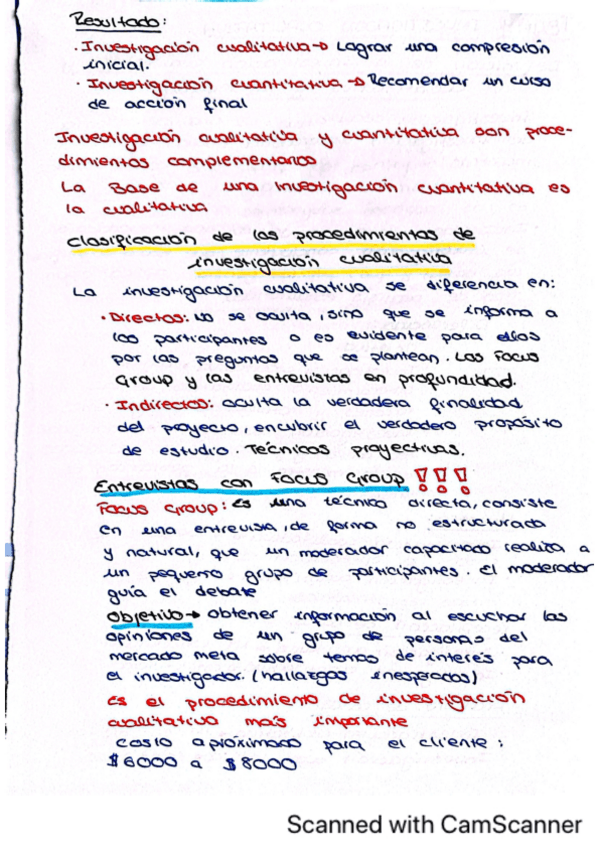 Resultado:
· Investigación cualitativa → Lograr una compresión
inicial.
· Investigación cuantitativa → Recomendar un curso
de acción final
Investigación cualitativa y cuantitativa son proce-
dimientos complementarios
La Base de una investigación cuantitativa es
la cualitativa
Clasificación de los procedimientos de
investigación cualitativa
La investigación cualitativa se diferencia en:
· Directos: No se oculta, sino que se informa a
los participantes o es evidente para ellos
por las preguntas que se plantean. Los Focus
Group y las entrevistas en profundidad.
· Indirectos: oculta la verdadera finalidad
del proyecto, encubrir el verdadero propósito
de estudio. Técnicas proyectivas.
Entrevistas con Focus Group !!!
Focus Group: Es una técnica directa, consiste
en una entrevista, de forma no estructurada
y natural, que un moderador capacitado realiza a
un pequeño grupo de participantes. El moderador
guía el debate
Objetivo → obtener información al escuchar las
opiniones de un grupo de personas del
mercado meta sobre temas de interés para
el investigador. (hallazgos inesperados)
Es el procedimiento de investigación
cualitativa más importante
Costo aproximado para el cliente:
$6000 a $8000
Scanned with CamScanner